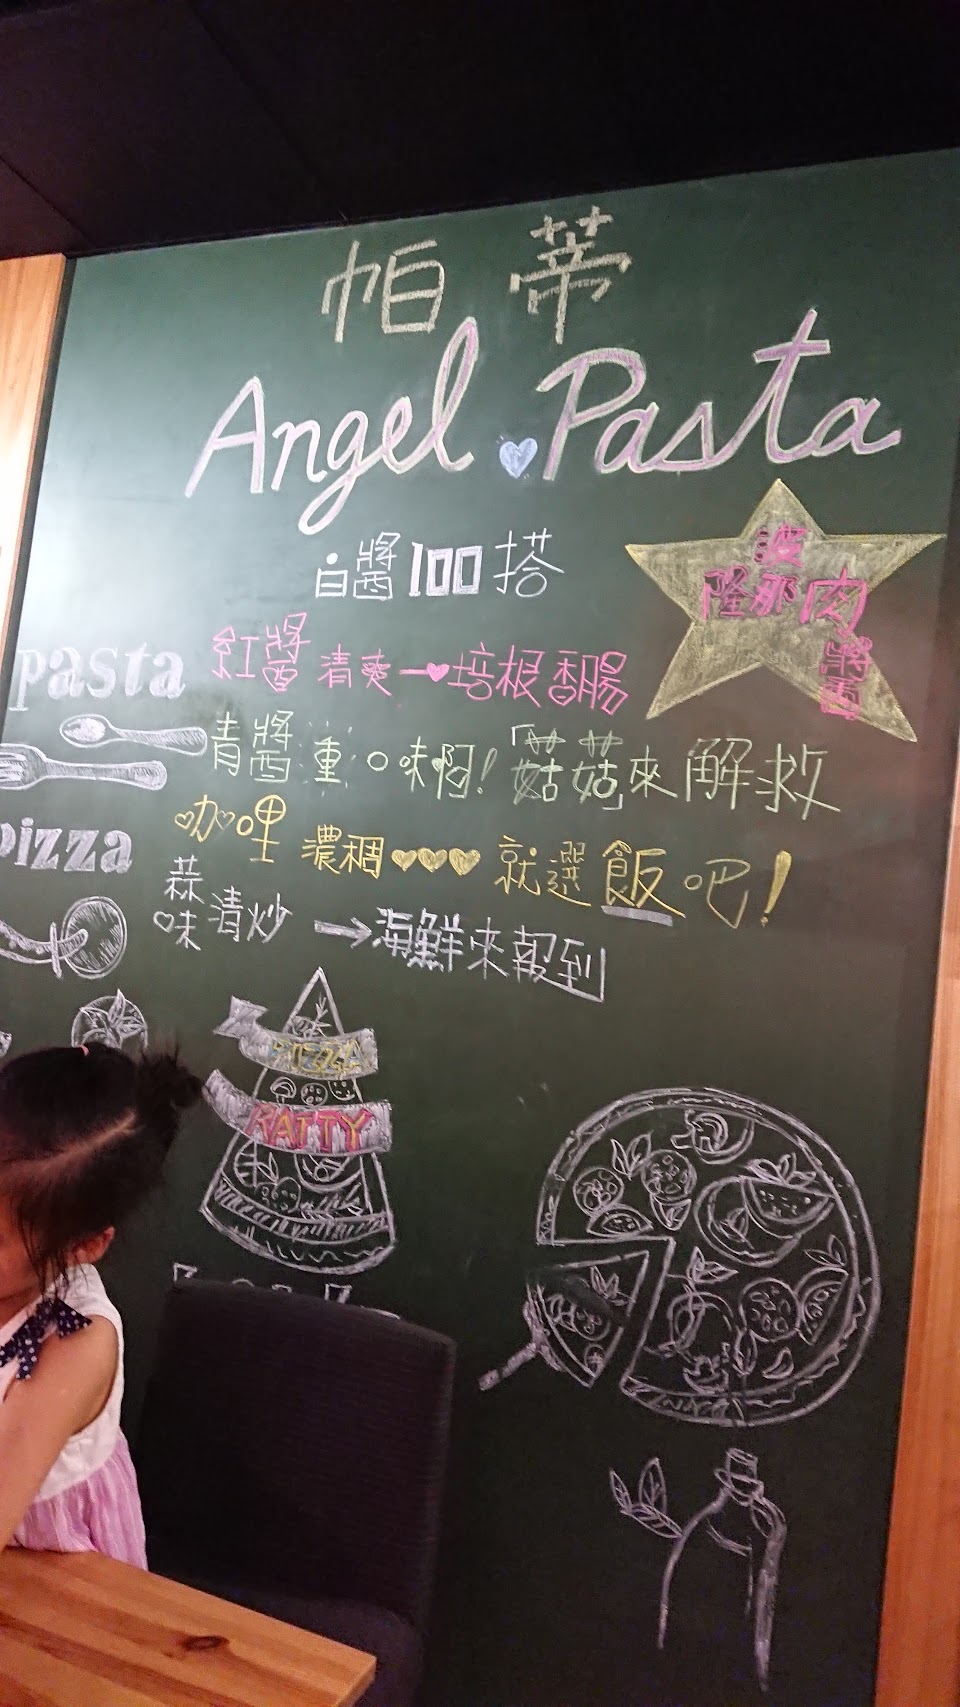 帕蒂
Angel Pasta
白醬100搭
波隆那肉醬
pasta
紅醬清爽→培根香腸
青醬重口味啊!「菇菇」來解救
咖哩濃稠 就選飯吧!
pizza
蒜味清炒→海鮮來報到
PIZZA
RATTY